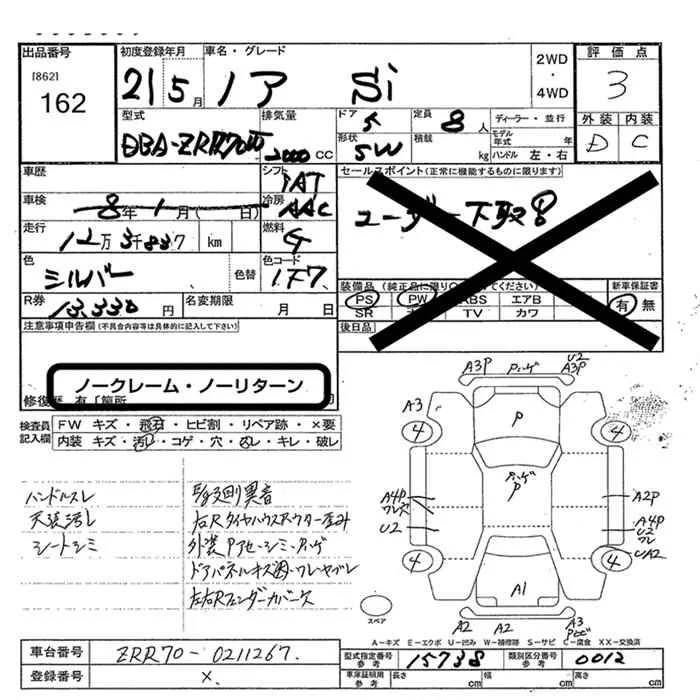 出品番号
[862]
162
初度登録年月
21 5月
車名・グレード
ノア Si
2WD
・
4WD
評価点
3
外装 内装
D C
型式
DBA-ZRR70W
排気量
2000 CC
ドア
5
形状
SW
定員
8人
積載
kg
ディーラー・並行
モデル年式 年
ハンドル 左・右
車歴
シフト
IAT
セールスポイント(正常に機能するものに限ります)
ユーザー下取!
車検
8年1月( 日)
冷房
AAC
走行
12万3千837 km
燃料
G
色
シルバー
色替
色コード
1F7
装備品(純正品に限り
てください)
新車保証書
PS PW ABS エアB
有 無
SR TV カワ
R券
13,330円
名変期限
月 日
後日品
注意事項申告欄(不具合内容等は具体的に記入して下さい)
ノークレーム・ノーリターン
修復歴 有「箇所
検査員記入欄
FW キズ・飛石・ヒビ割・リペア跡・×要
内装 キズ・汚レ・コゲ・穴・凹レ・キレ・破レ
ハンドルスレ
天張汚レ
シートシミ
右R タイヤハウスアウター歪み
左右Rフェンダーカバース
A3P
U2
A3P
A3
4
P
4
P
A4P
U2
A2P
A4P
U2
UA2
4
A1
4
スペア
A2 A2 A3
A-キズ E-エクボ U-凹み W-補修跡 S-サビ C-腐食 XX-交換済
車台番号
ZRR70-0211267.
登録番号
×.
型式指定番号
参考
15738
類別区分番号
参考
0012
車庫証明用
参考
長さ cm
幅 cm
高さ cm